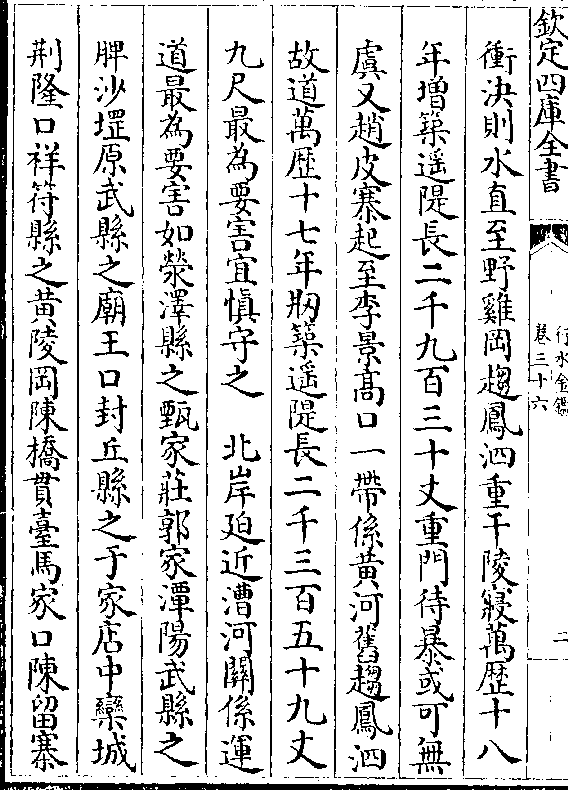 欽定四庫全書
行水金鑑
卷三十六
二
衝決則水直至野雞岡趨鳳泗重干陵寢萬歷十八
年增築遥隄長二千九百三十丈重門待暴或可無
虞又趙皮寨起至李景髙口一帶係黄河舊趨鳳泗
故道萬歷十七年剏築遥隄長二千三百五十九丈
九尺最為要害宜愼守之　北岸廹近漕河關係運
道最為要害如滎澤縣之甄家莊郭家潭陽武縣之
脾沙堽原武縣之廟王口封丘縣之于家店中欒城
荆隆口祥符縣之黄陵岡陳橋貫臺馬家口陳留寨